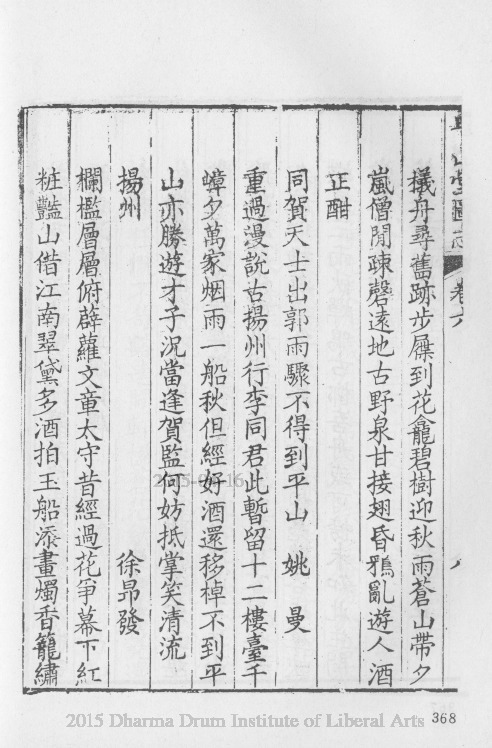 平山堂圖志 卷六 八
檥舟尋舊跡步屧到花龕碧樹迎秋雨蒼山帶夕
嵐僧閒疎磬遠地古野泉甘接翅昏鴉亂遊人酒
正酣
同賀天士出郭雨驟不得到平山 姚曼
重過漫說古揚州行李同君此暫留十二樓臺千
嶂夕萬家烟雨一船秋但經好酒還移棹不到平
山亦勝遊才子況當逢賀監何妨抵掌笑清流
揚州 徐昂發
欄檻層層俯薜蘿文章太守昔經過花爭幕下紅
粧豔山借江南翠黛多酒拍玉船添畫燭香籠繡
2015-04-16
2015 Dharma Drum Institute of Liberal Arts 368